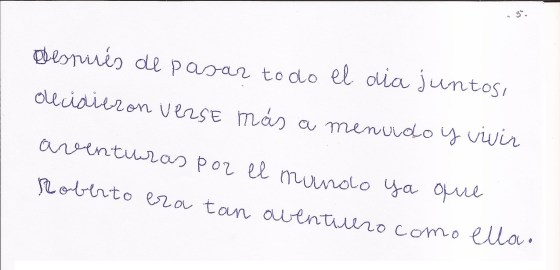 . 5 .
después de pasar todo el dia juntos,
decidieron VERSE más a menudo y vivir
aventuras por el mundo ya que
Roberto era tan aventuero como ella.